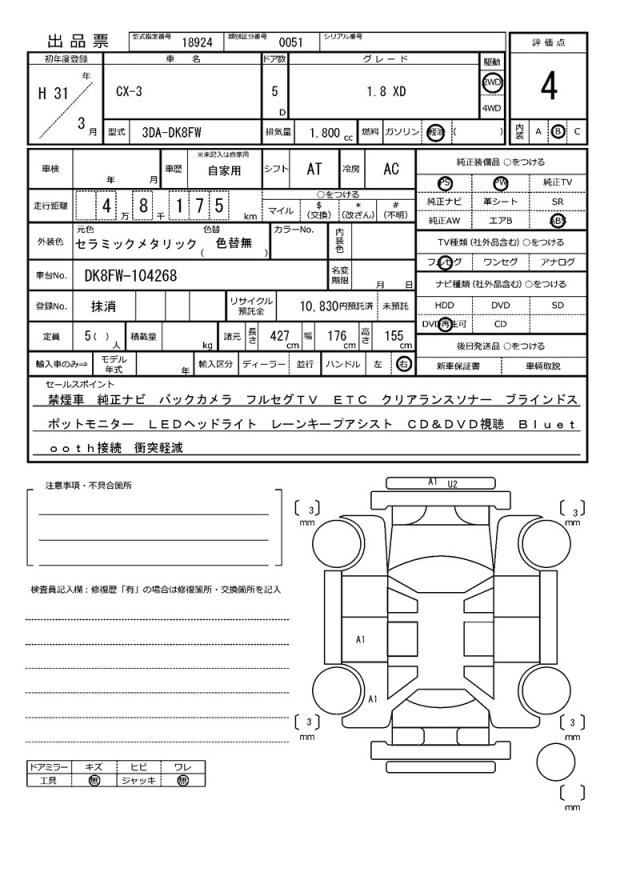 出品票 型式指定番号 18924 類別区分番号 0051 シリアル番号
評価点 4
初年度登録 車名 ドア数 グレード 駆動
H 31 年 3 月 CX-3 5 D 1.8 XD 2WD 4WD
型式 3DA-DK8FW 排気量 1,800 cc 燃料 ガソリン 軽油 ( ) 内装 A B C
車検 年 月 車歴 ※未記入は自家用 自家用 シフト AT 冷房 AC
純正装備品 ○をつける
PS PW 純正TV
純正ナビ 革シート SR
純正AW エアB ABS
走行距離 4 万 8 千 1 7 5 km ○をつける マイル $ (交換) * (改ざん) # (不明)
外装色 元色 セラミックメタリック 色替 ( 色替無 ) カラーNo. 内装色
TV種類 (社外品含む) ○をつける
フルセグ ワンセグ アナログ
車台No. DK8FW-104268 名変期限 月 日
ナビ種類 (社外品含む) ○をつける
HDD DVD SD
DVD再生可 CD
登録No. 抹消 リサイクル預託金 10,830円預託済 未預託
定員 5( ) 人 積載量 kg 諸元 長さ 427 cm 幅 176 cm 高さ 155 cm
後日発送品 ○をつける
新車保証書 車輌取説
輸入車のみ⇒ モデル年式 年 輸入区分 ディーラー 並行 ハンドル 左 右
セールスポイント
禁煙車 純正ナビ バックカメラ フルセグTV ETC クリアランスソナー ブラインドス
ポットモニター LEDヘッドライト レーンキープアシスト CD&DVD視聴 Bluet
ooth接続 衝突軽減
注意事項・不具合箇所
検査員記入欄：修復歴「有」の場合は修復箇所・交換箇所を記入
A1 U2
3 mm
3 mm
A1
A1
3 mm
3 mm
mm
ドアミラー キズ ヒビ ワレ
工具 無 ジャッキ 無